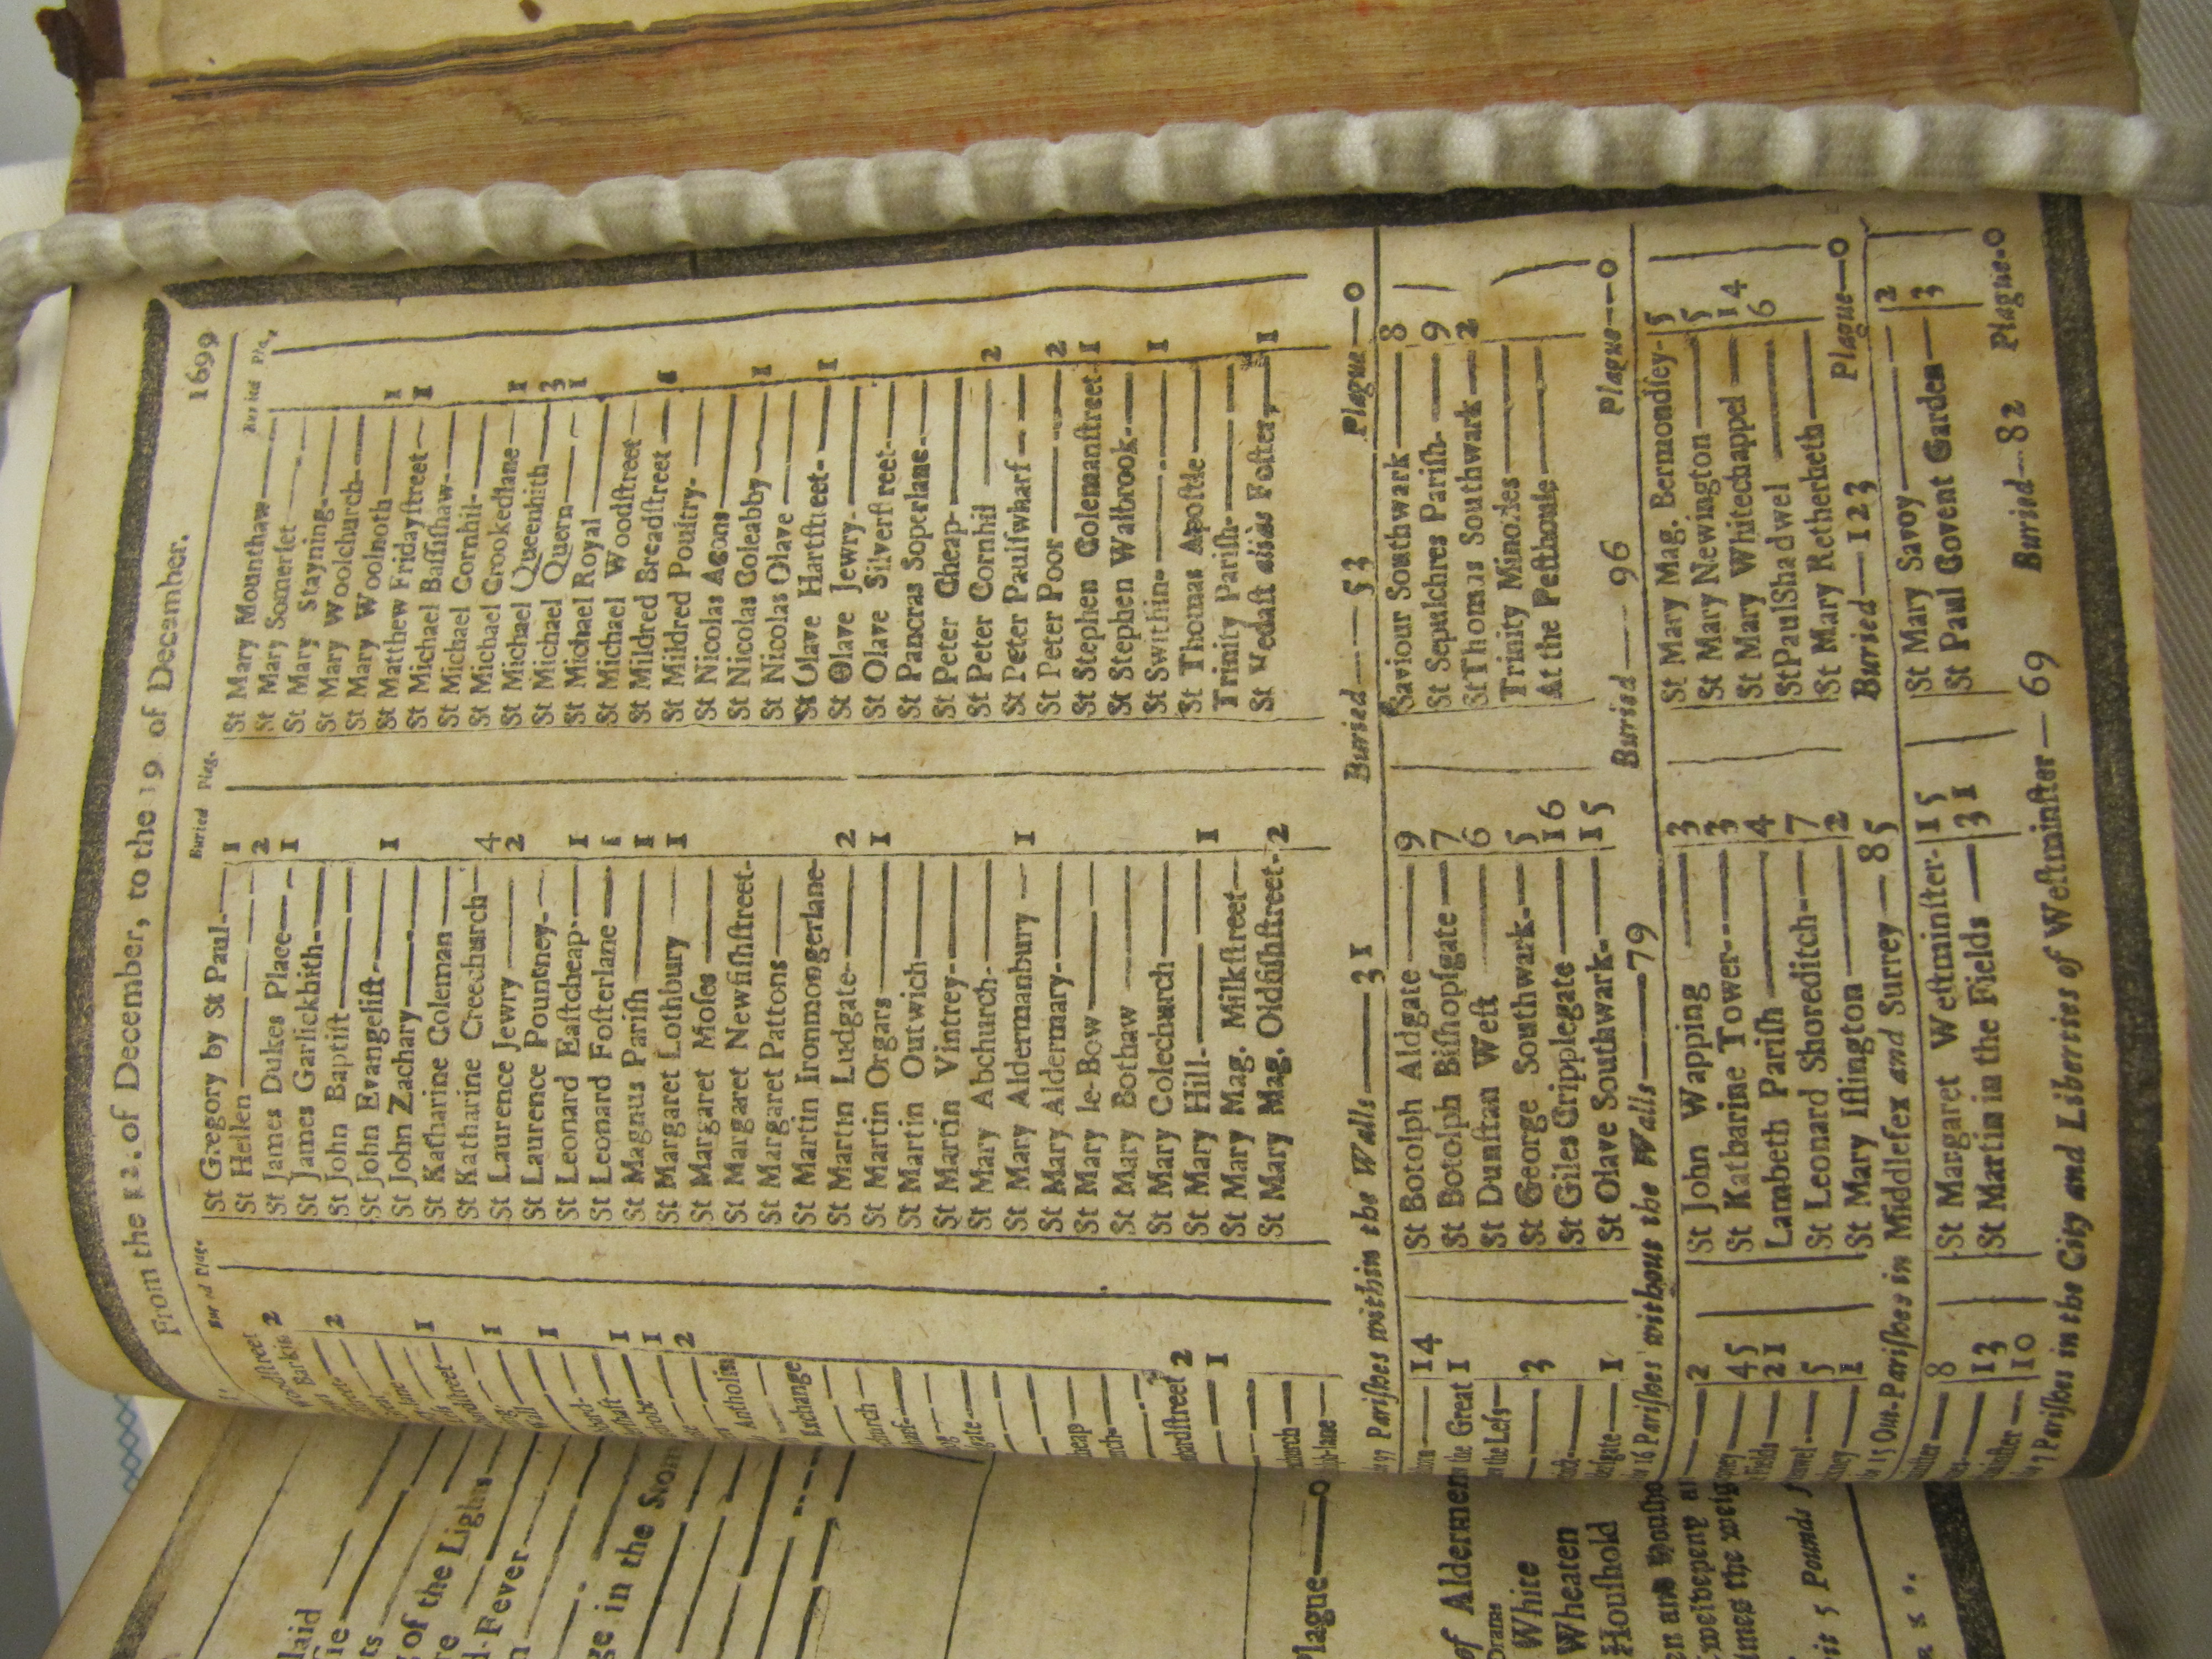 From the 12. of December, to the 19 of December. 1699
Buried Plag.
Buried Plag.
Buried Plag.
Woodstreet
Barkin 2
2
1
1
1
1
1
2
Antholin
Exchange
church
gate
heap
bardstreet 2
1
church
lane
St Gregory by St Paul 1
St Hellen 2
St James Dukes Place 1
St James Garlickhith
St John Baptist
St John Evangelist 1
St John Zachary
St Katharine Coleman
St Katharine Creechurch 4
St Laurence Jewry 2
St Laurence Pountney
St Leonard Eastcheap 1
St Leonard Fosterlane 1
St Magnus Parish 1
St Margaret Lothbury 1
St Margaret Moses
St Margaret Newfishstreet
St Margaret Pattons
St Martin Ironmongerlane
St Martin Ludgate 2
St Martin Orgars 1
St Martin Outwich
St Martin Vintrey
St Mary Abchurch
St Mary Aldermanbury 1
St Mary Aldermary
St Mary le-Bow
St Mary Bothaw
St Mary Colechurch
St Mary Hill 1
St Mary Mag. Milkstreet
St Mary Mag. Oldfishstreet 2
St Mary Mounthaw
St Mary Somerset
St Mary Stayning
St Mary Woolchurch
St Mary Woolnoth 1
St Matthew Fridaystreet 1
St Michael Bassishaw
St Michael Cornhil
St Michael Crookedlane 1
St Michael Queenhith 3
St Michael Quern 1
St Michael Royal
St Michael Woodstreet
St Mildred Breadstreet 1
St Mildred Poultry
St Nicolas Acons
St Nicolas Coleabby 1
St Nicolas Olave
St Olave Hartstreet 1
St Olave Jewry
St Olave Silverstreet
St Pancras Soperlane
St Peter Cheap
St Peter Cornhil 2
St Peter Paulswharf
St Peter Poor 2
St Stephen Colemanstreet 1
St Stephen Walbrook
St Swithin 1
St Thomas Apostle
Trinity Parish
St Vedast aliàs Foster 1
97 Parishes within the Walls 31 Buried 53 Plague 0
14
the Great 1
the Less
3
1
St Botolph Aldgate 9
St Botolph Bishopsgate 7
St Dunstan West 6
St George Southwark 5
St Giles Cripplegate 16
St Olave Southwark 15
Saviour Southwark 8
St Sepulchres Parish 9
St Thomas Southwark 2
Trinity Minories
At the Pesthouse
16 Parishes without the Walls 79 Buried 96 Plague 0
2
45
Fields 21
5
1
St John Wapping 3
St Katharine Tower 3
Lambeth Parish 4
St Leonard Shoreditch 7
St Mary Islington 2
St Mary Mag. Bermondsey 5
St Mary Newington 5
St Mary Whitechappel 14
St Paul Shadwel 6
St Mary Retherheth
15 Out-Parishes in Middlesex and Surrey 85 Buried 123 Plague 0
8
13
10
St Margaret Westminster 15
St Martin in the Fields 31
St Mary Savoy 2
St Paul Covent Garden 3
7 Parishes in the City and Liberties of Westminster 69 Buried 82 Plague 0
of the Lights
Fever
in the
Plague 0
of Aldermen
White
Wheaten
Houshold
times the weig
5 Pounds